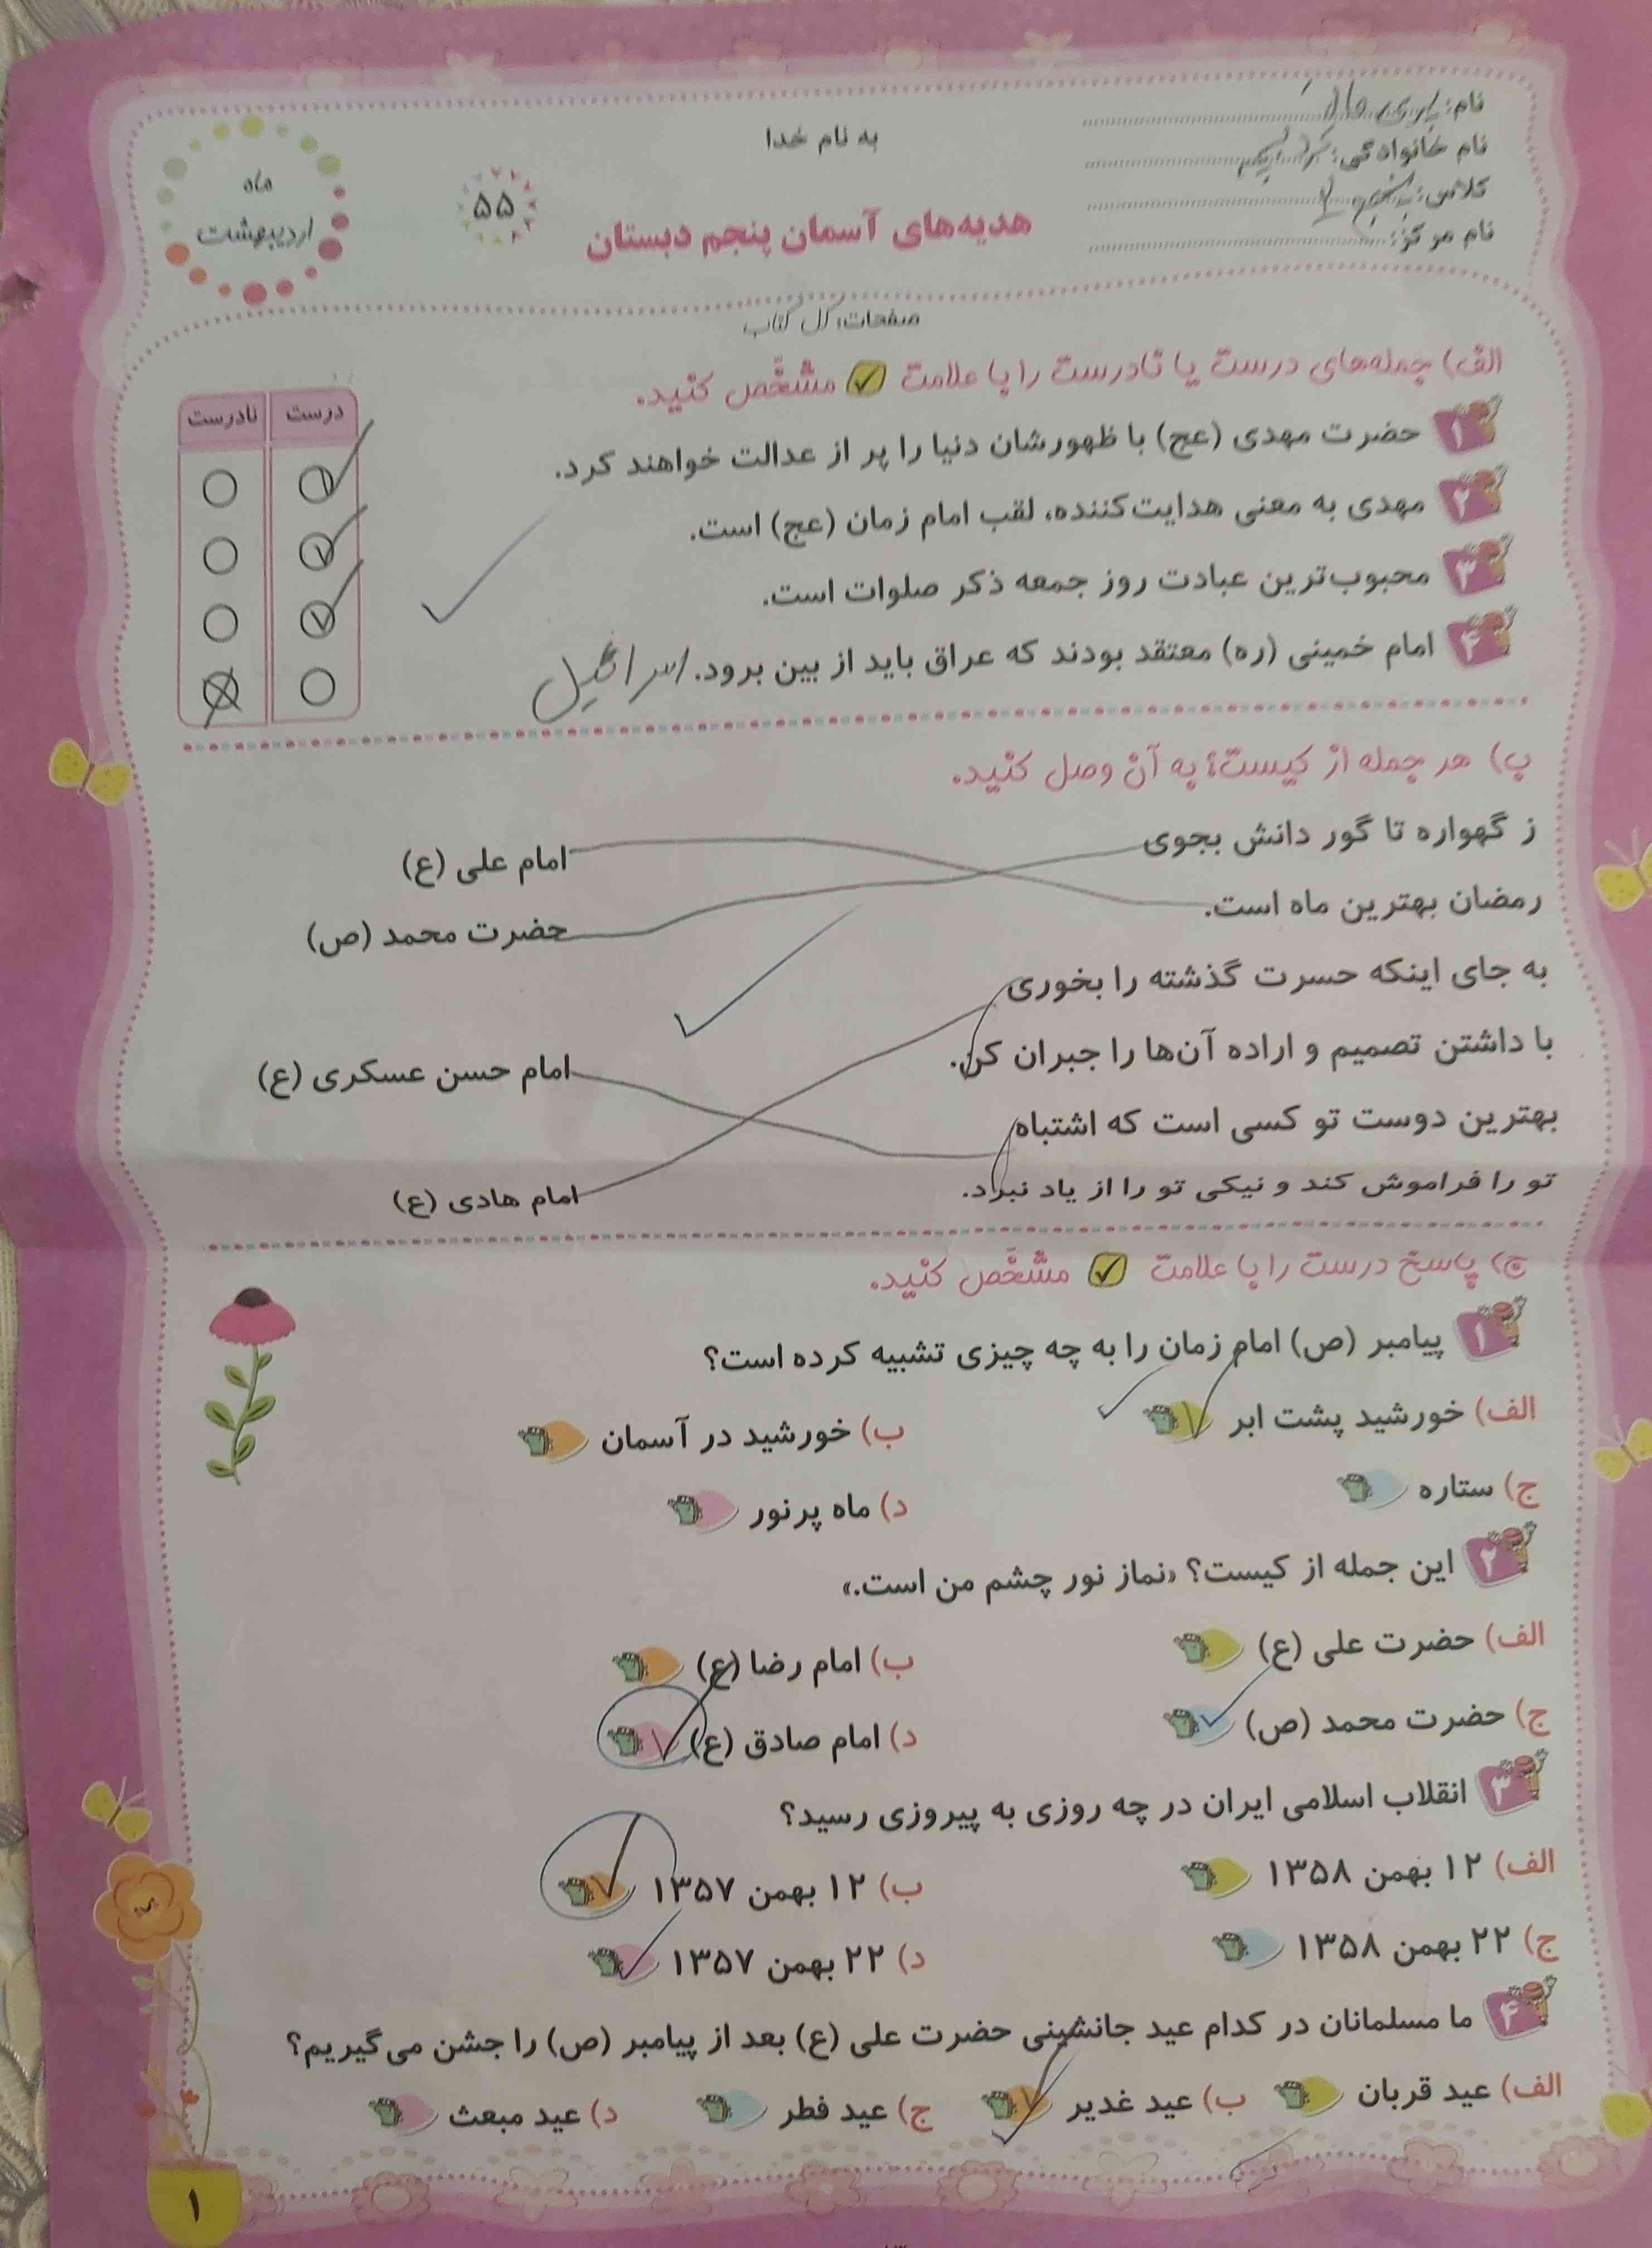 نام:
نام خانوادگی:
کلاس: پنجم ۲
نام مرکز:
به نام خدا
هدیه‌های آسمان پنجم دبستان
۵۵
ماه
اردیبهشت
صفحات: کل کتاب
الف) جمله‌های درست یا نادرست را با علامت ✓ مشخّص کنید.
درست نادرست
۱ حضرت مهدی (عج) با ظهورشان دنیا را پر از عدالت خواهند کرد.
۲ مهدی به معنی هدایت‌کننده، لقب امام زمان (عج) است.
۳ محبوب‌ترین عبادت روز جمعه ذکر صلوات است.
۴ امام خمینی (ره) معتقد بودند که عراق باید از بین برود. اسرائیل
ب) هر جمله از کیست؟ به آن وصل کنید.
ز گهواره تا گور دانش بجوی
امام علی (ع)
رمضان بهترین ماه است.
حضرت محمد (ص)
به جای اینکه حسرت گذشته را بخوری
با داشتن تصمیم و اراده آن‌ها را جبران کن.
امام حسن عسکری (ع)
بهترین دوست تو کسی است که اشتباه
تو را فراموش کند و نیکی تو را از یاد نبرد.
امام هادی (ع)
ج) پاسخ درست را با علامت ✓ مشخّص کنید.
۱ پیامبر (ص) امام زمان را به چه چیزی تشبیه کرده است؟
الف) خورشید پشت ابر ب) خورشید در آسمان
ج) ستاره د) ماه پرنور
۲ این جمله از کیست؟ «نماز نور چشم من است.»
الف) حضرت علی (ع) ب) امام رضا (ع)
ج) حضرت محمد (ص) د) امام صادق (ع)
۳ انقلاب اسلامی ایران در چه روزی به پیروزی رسید؟
الف) ۱۲ بهمن ۱۳۵۸ ب) ۱۲ بهمن ۱۳۵۷
ج) ۲۲ بهمن ۱۳۵۸ د) ۲۲ بهمن ۱۳۵۷
۴ ما مسلمانان در کدام عید جانشینی حضرت علی (ع) بعد از پیامبر (ص) را جشن می‌گیریم؟
الف) عید قربان ب) عید غدیر ج) عید فطر د) عید مبعث
۱